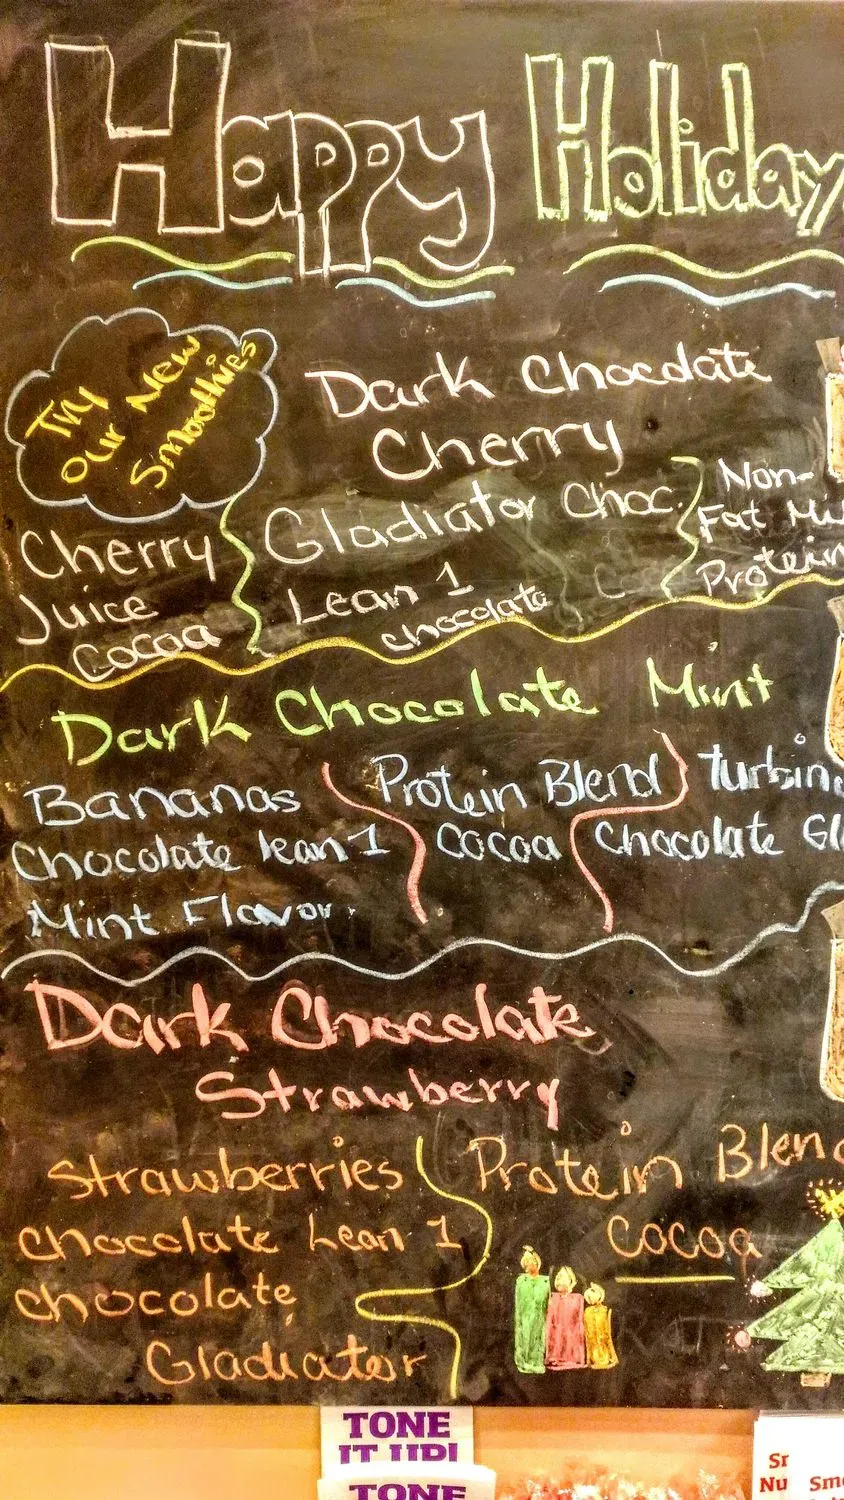 Happy Holiday
Try
our New
Smoothies
Dark Chocolate
Cherry
Cherry
Juice
Cocoa
Gladiator Choc.
Lean 1
chocolate
Non-
Fat
Protein
Dark Chocolate Mint
Bananas
Chocolate lean 1
Mint Flavor.
Protein Blend
Cocoa
Chocolate
Dark Chocolate
Strawberry
Strawberries
chocolate Lean 1
chocolate
Gladiator
Protein Blend
Cocoa
TONE
IT UP!
TONE